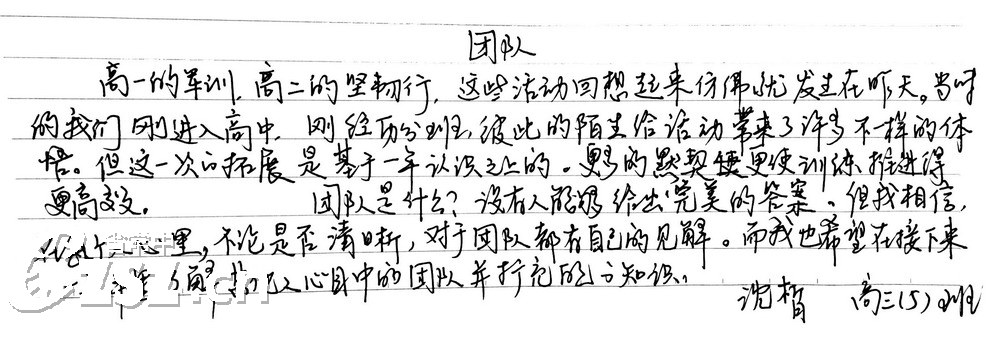 团队
高一的军训,高二的坚韧行,这些活动回想起来仿佛就发生在昨天。当时
的我们刚进入高中,刚经历分班,彼此的陌生给活动带来了许多不一样的体
悟。但这一次的拓展是基于一年认识之上的。更多的默契使更使训练推进得
更高效。 团队是什么?没有人能够给出完美的答案。但我相信,
心里,不论是否清晰,对于团队都有自己的见解。而我也希望在接下来
心目中的团队并扩充的知识。
沈楷 高三(5)班